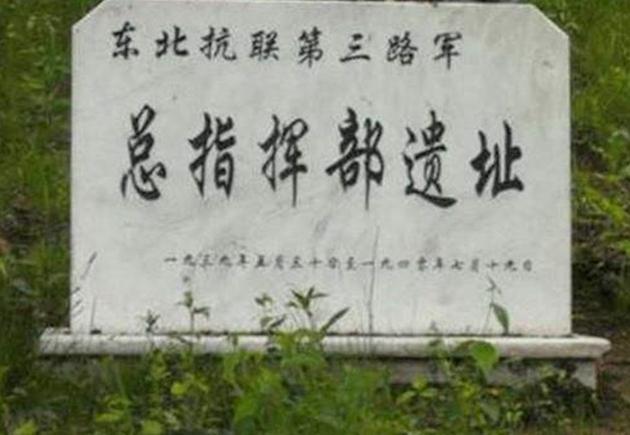 东北抗联第三路军
总指挥部遗址
一九三九年五月三十日至一九四零年七月十九日